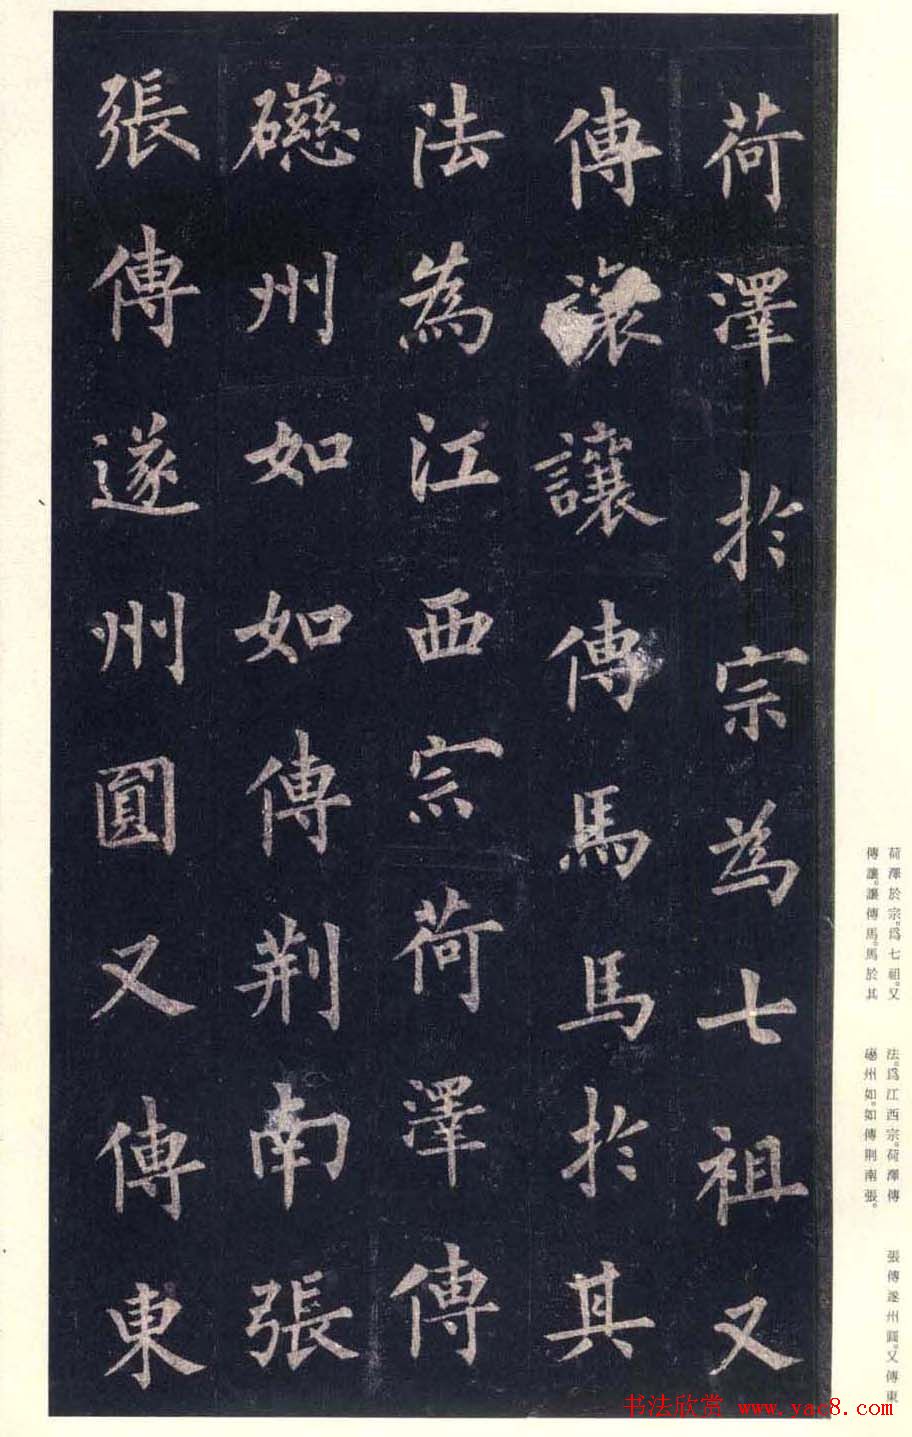 荷澤於宗為七祖又
傳讓讓傳馬馬於其
法為江西宗荷澤傳
礠州如如傳荆南張
張傳遂州圓又傳東
荷澤於宗。爲七祖。又
傳讓。讓傳馬。馬於其
法。爲江西宗。荷澤傳
礠州如。如傳荆南張。
張傳遂州圓。又傳東
书法欣赏 www.yac8.com